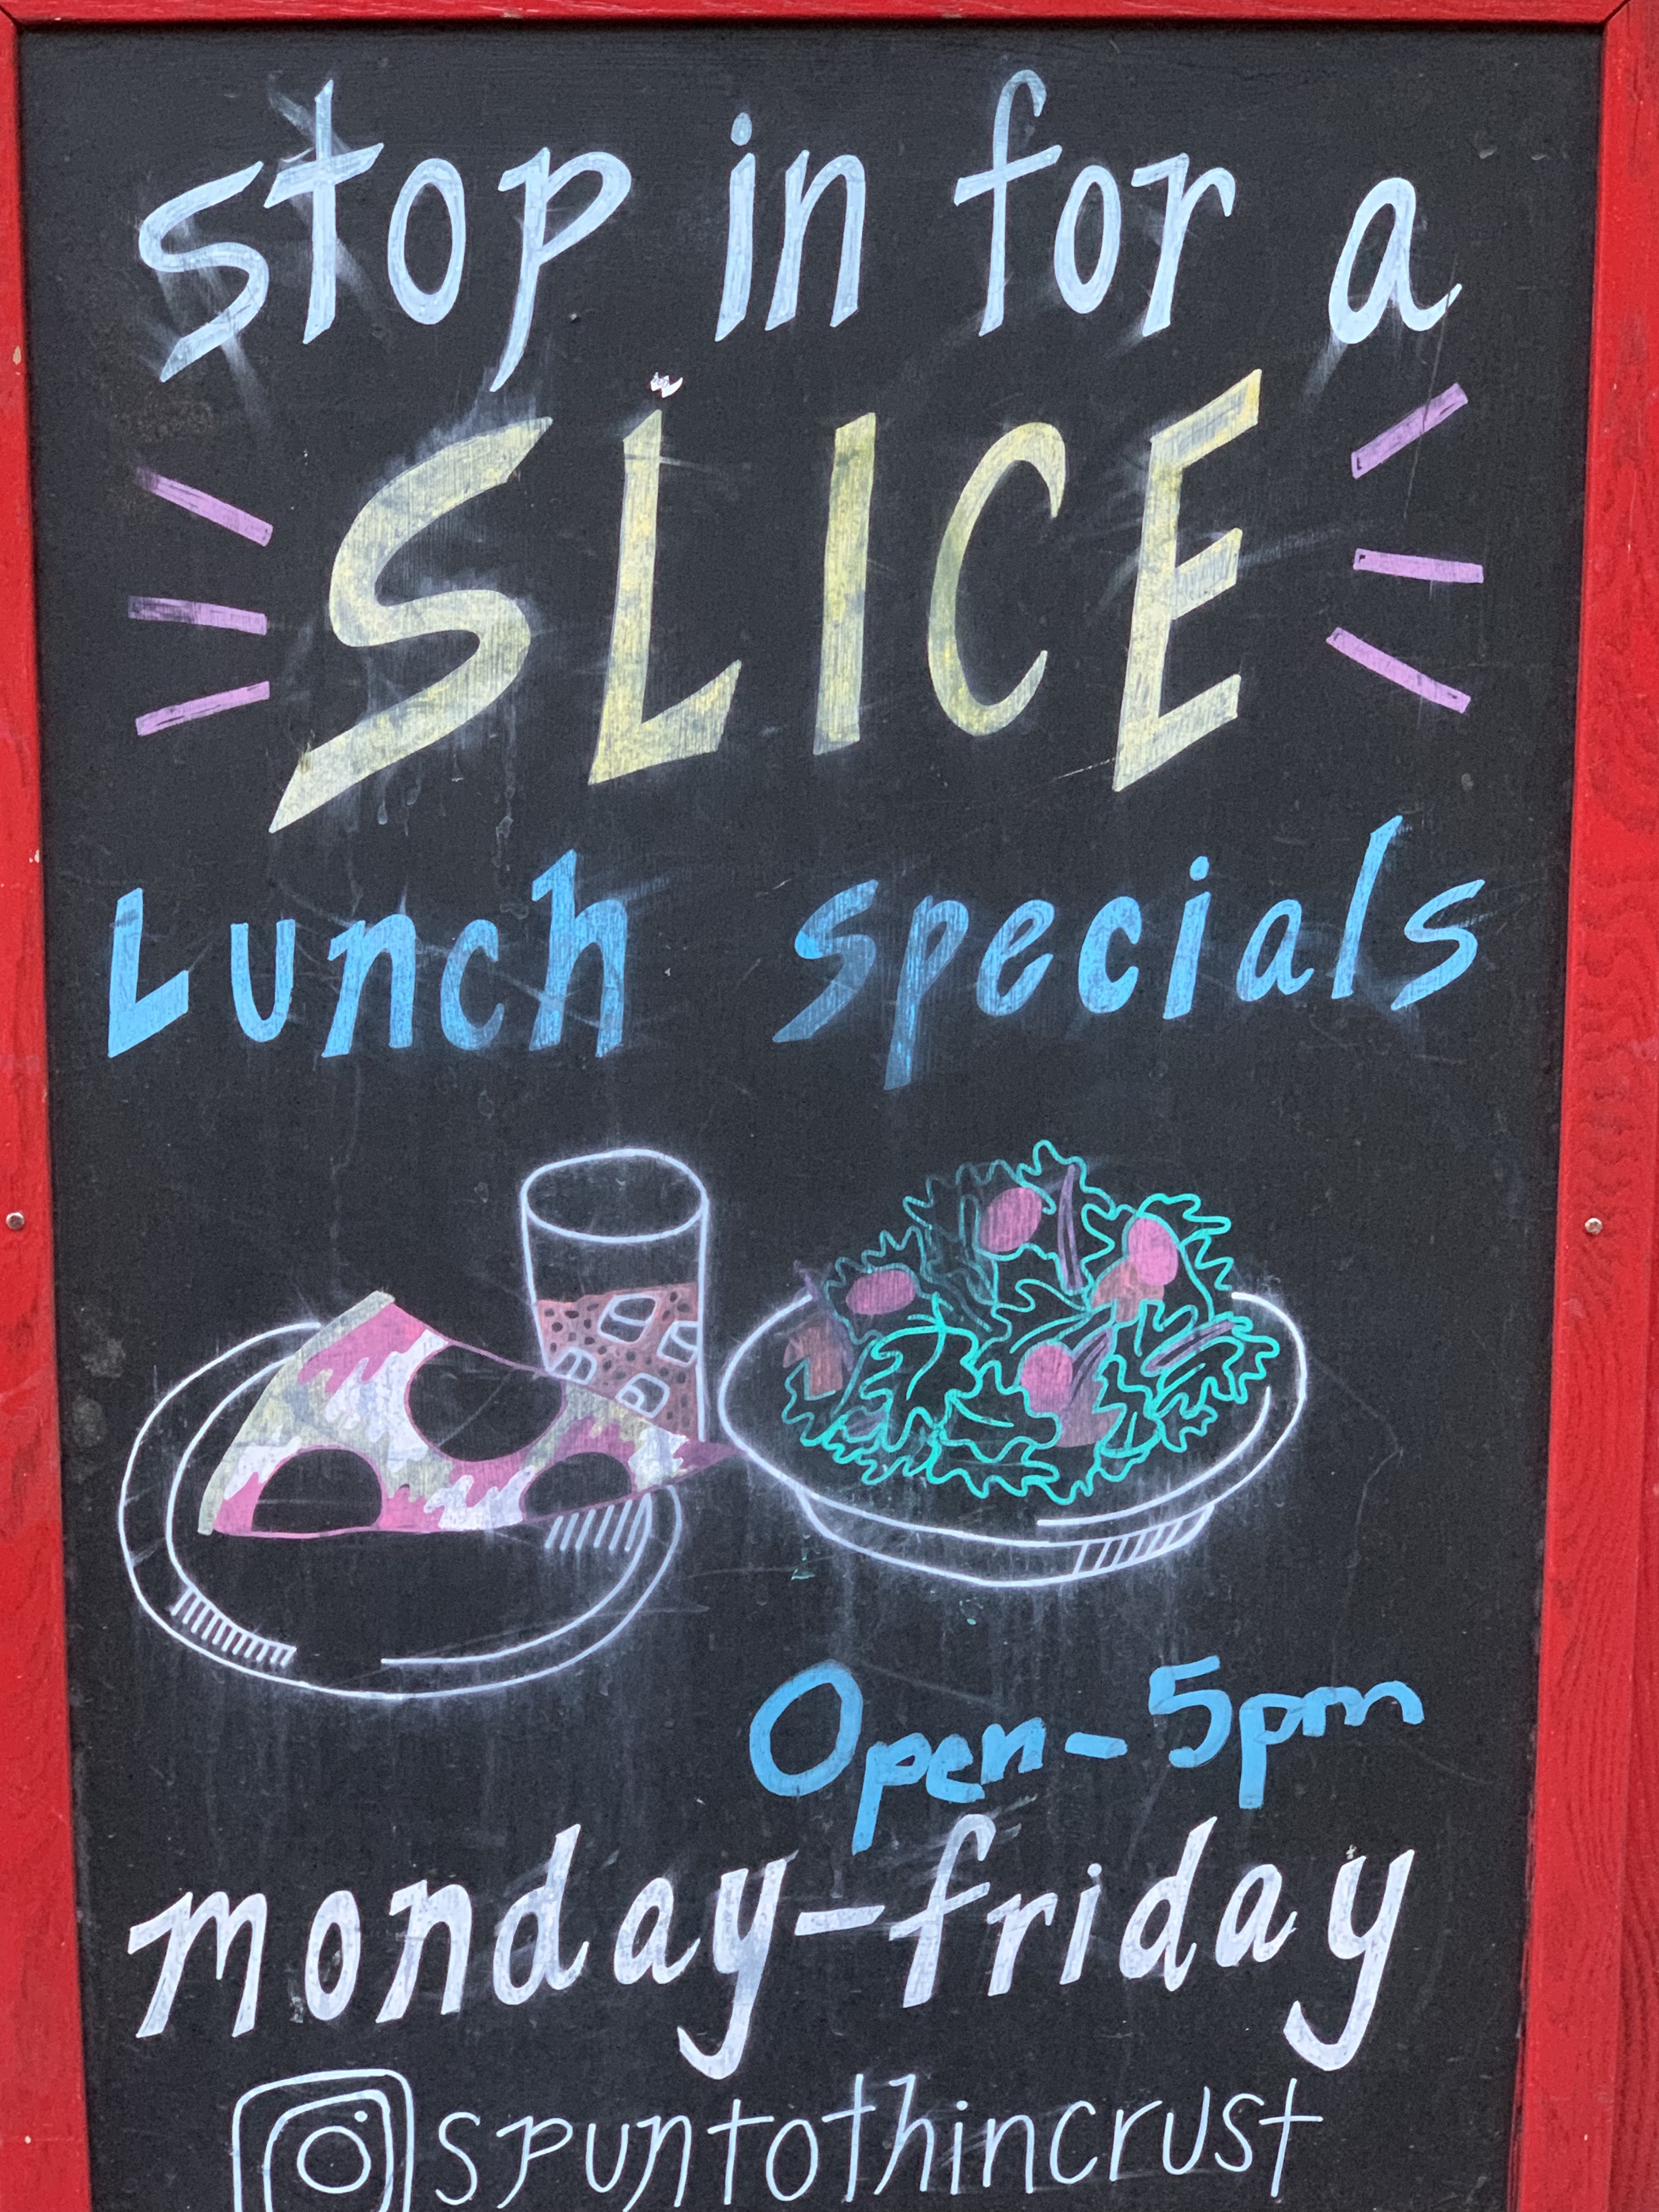 stop in for a
SLICE
Lunch specials
Open-5pm
monday-friday
spuntothincrust